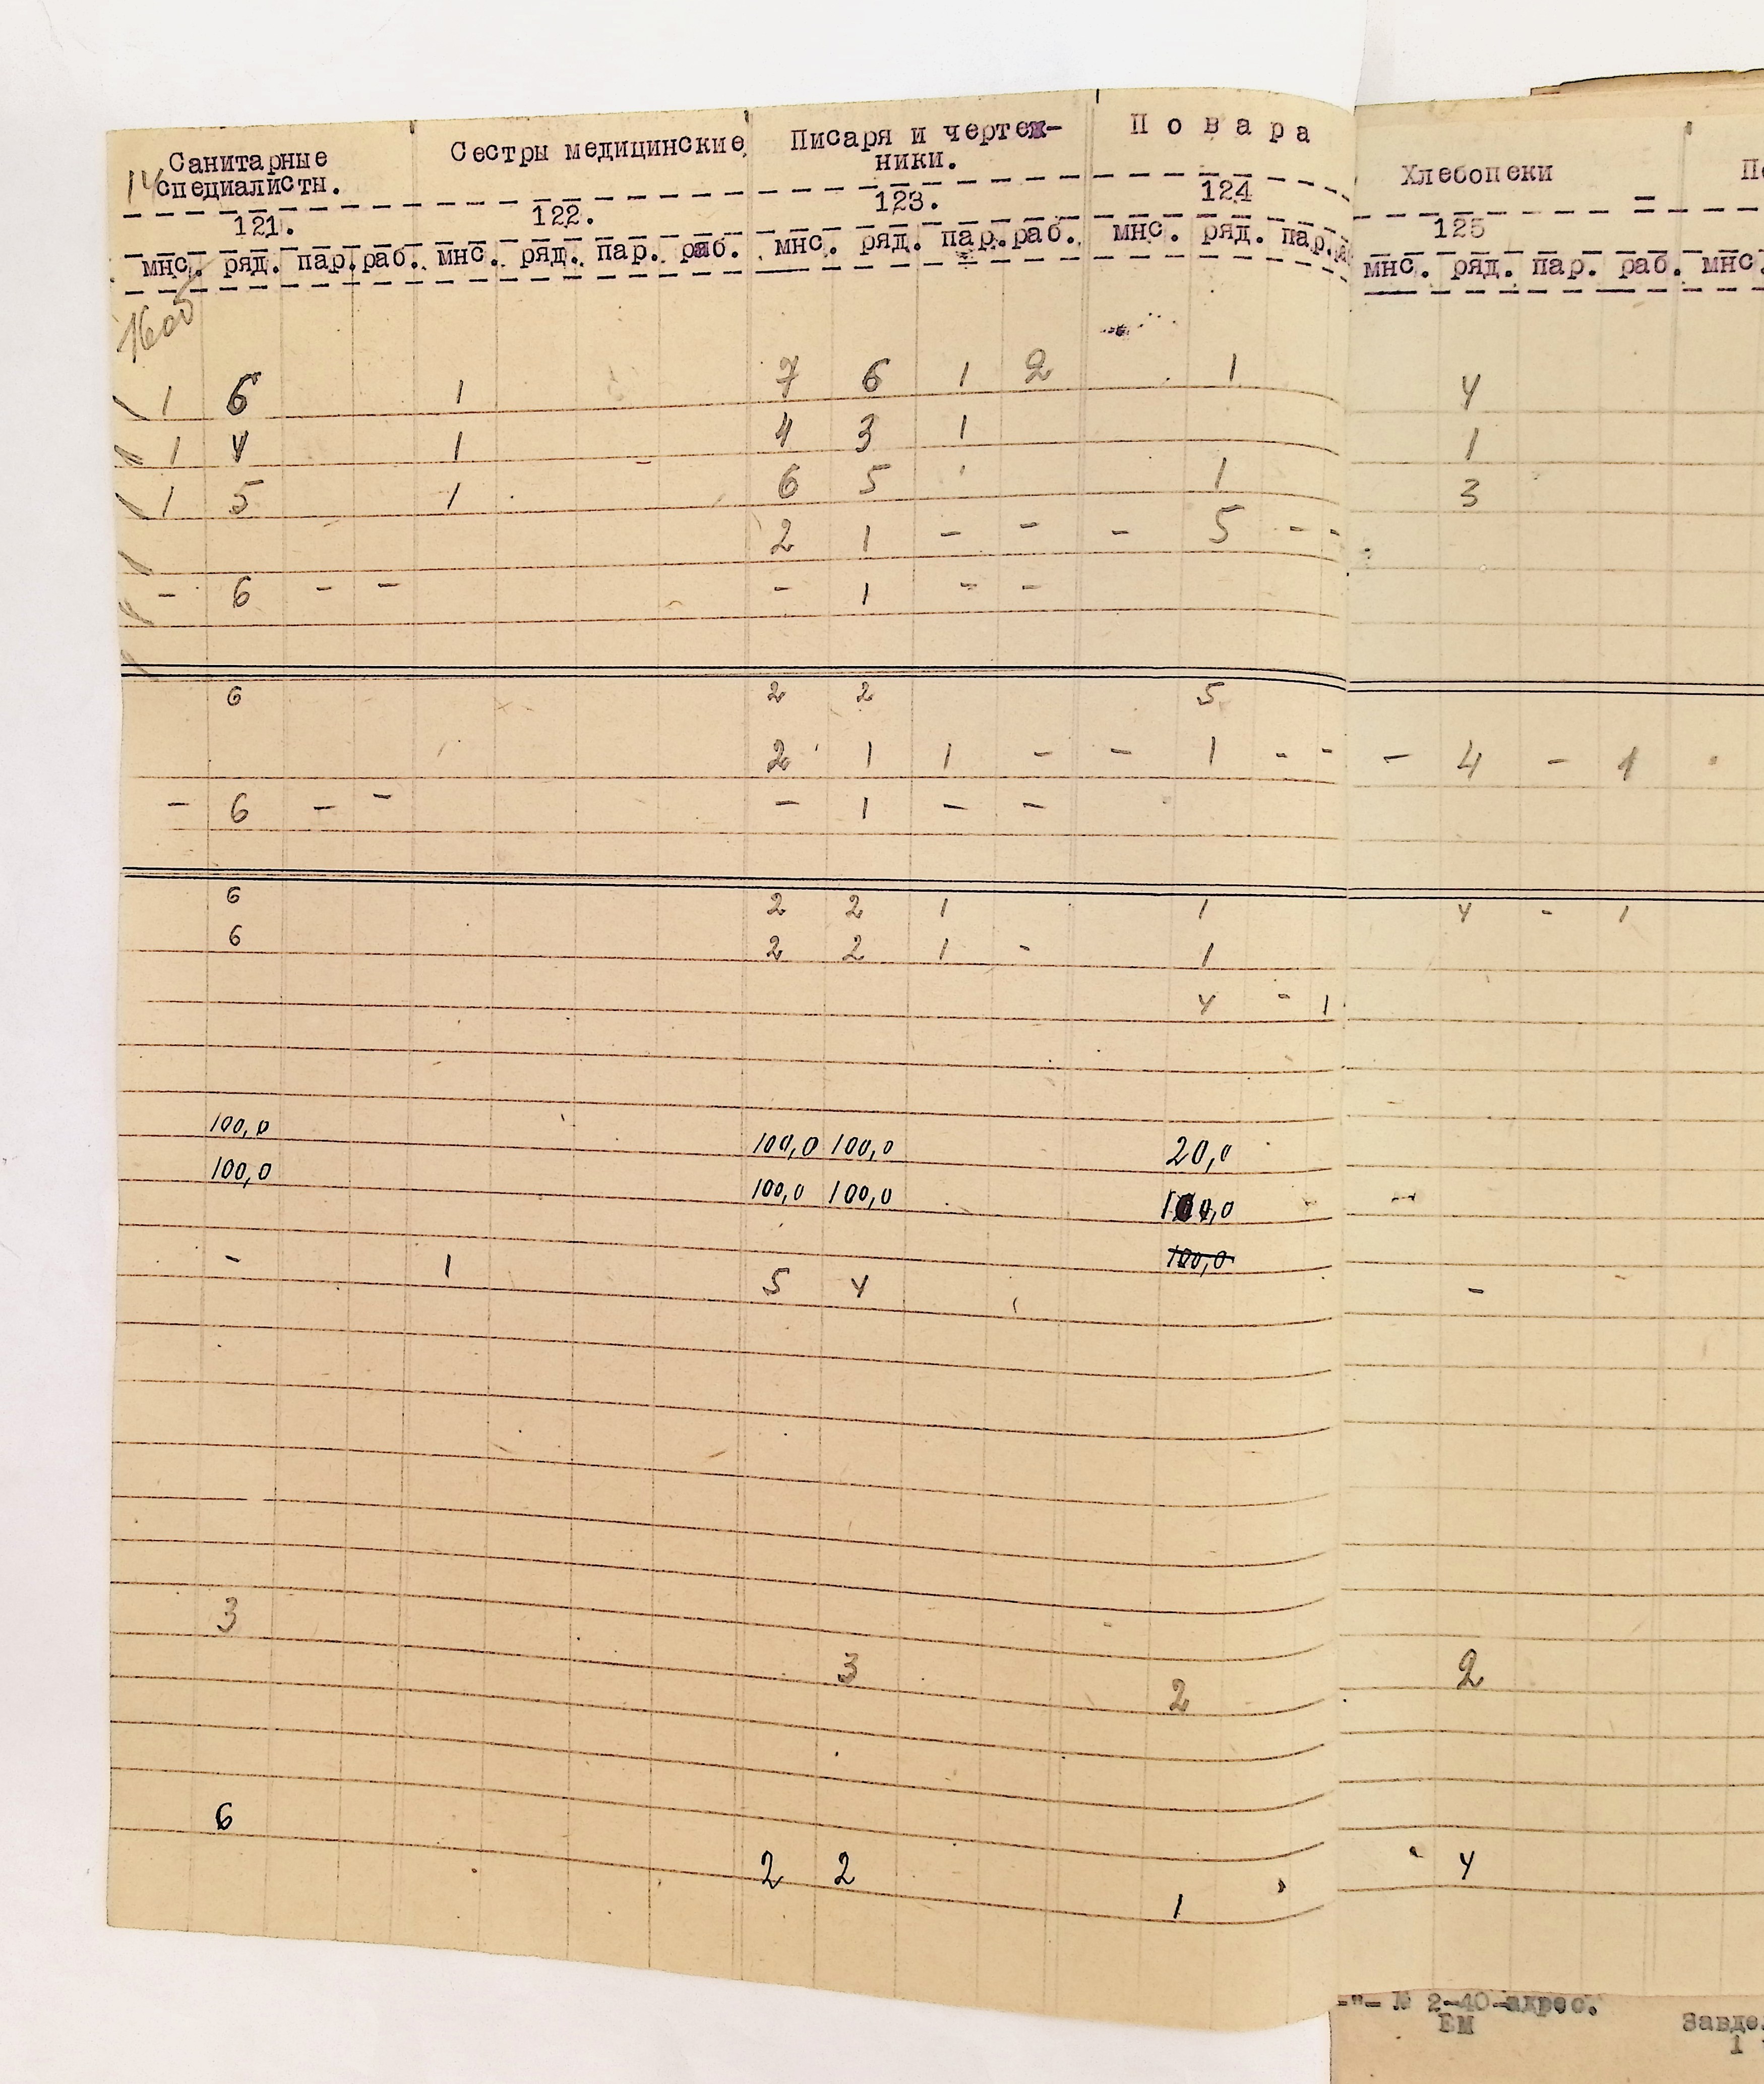 Санитарные специалисты. Сестры медицинские Писаря и чертеж- Повара Хлебопеки
14 ники.
121. 122. 123. 124 125
мнс. ряд. пар. раб. мнс. ряд. пар. раб. мнс. ряд. пар. раб. мнс. ряд. пар. мнс. ряд. пар. раб. мнс.
1 6 1 7 6 1 2 1 4
1 4 1 4 3 1 1
1 5 1 6 5 1 3
2 1 - - - 5 - -
- 6 - - - 1 - -
6 2 2 5
2 1 1 - - 1 - - - 4 - 1
- 6 - - - 1 - -
6 2 2 1 1 4 - 1
6 2 2 1 - 1
4 - 1
100,0 100,0 100,0 20,0
100,0 100,0 100,0 100,0
100,0
- 1 5 4 -
3
3 2 2
6
2 2 4
1
-"- № 2-40-адрес.
ВМ Завде.
1